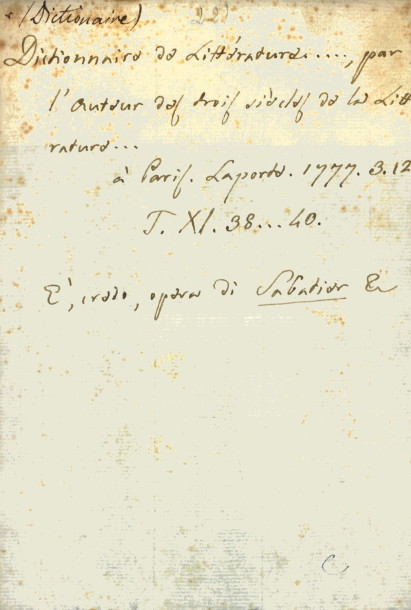 (Dictionaire) 221
Dictionnaire de Littérature...., par
l'Auteur des trois siècles de la Litt
rature...
à Paris. Laporte. 1777. 3. 12
T. XI. 38...40.
E', credo, opera di Sabatier
C